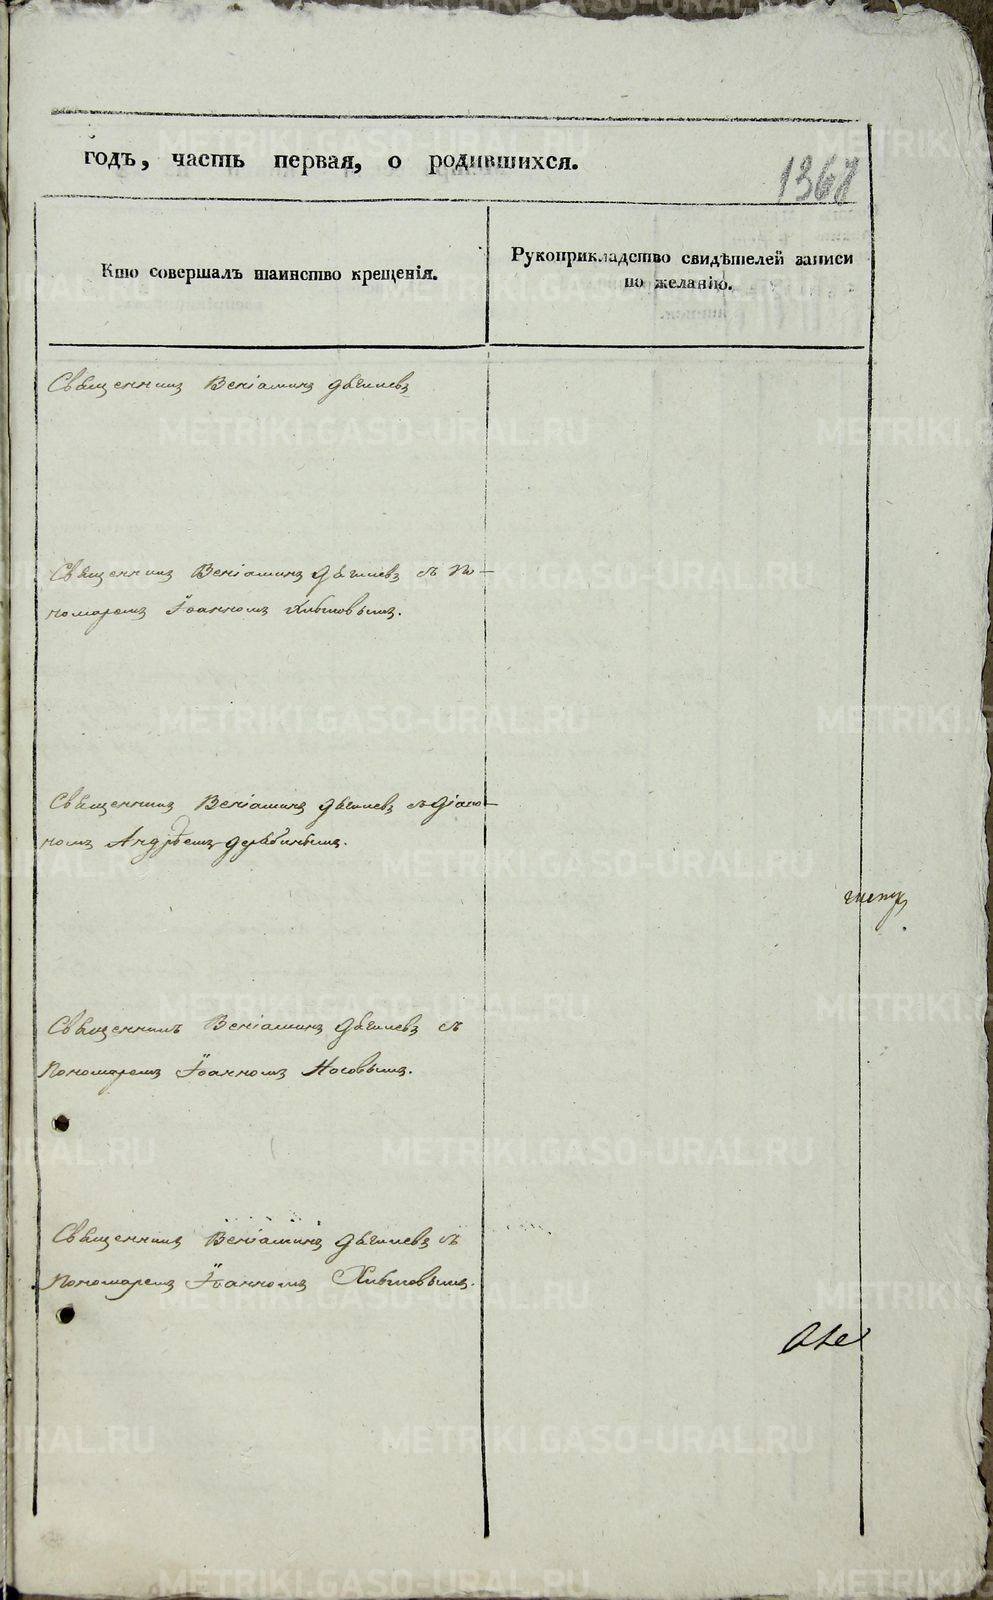 годъ, часть первая, о родившихся.
1368
Кто совершалъ таинство крещенія.
Рукоприкладство свидѣтелей записи
по желанію.
Священникъ Веніаминъ Дягилевъ
Священникъ Веніаминъ Дягилевъ съ По-
номаремъ Іоанномъ Хлыновымъ.
Священникъ Веніаминъ Дягилевъ съ Діако-
номъ Андреемъ Дерябинымъ.
Священникъ Веніаминъ Дягилевъ съ
Пономаремъ Іоанномъ Носовымъ.
Священникъ Веніаминъ Дягилевъ съ
Пономаремъ Іоанномъ Хлыновымъ.
METRIKI.GASO-URAL.RU